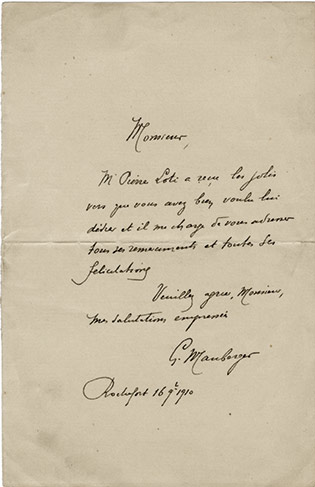 Monsieur,
Mr Pierre Loti a reçu les jolis
vers que vous avez bien voulu lui
dédier et il me charge de vous adresser
tous ses remerciements et toutes ses
félicitations
Veuillez agréer, Monsieur,
mes salutations empressées
G. Mauberger
Rochefort 16 9e 1910